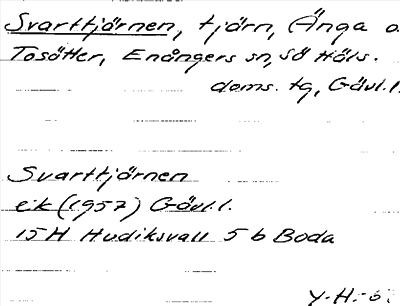 Svarttjärnen, tjärn, (Änga o.
Tosätter, Enångers sn, Sö Häls.
doms. tg, Gävl.l.
Svarttjärnen
ek (1957) Gävl.l.
15H Hudiksvall 5 b Boda
Y.H.-6